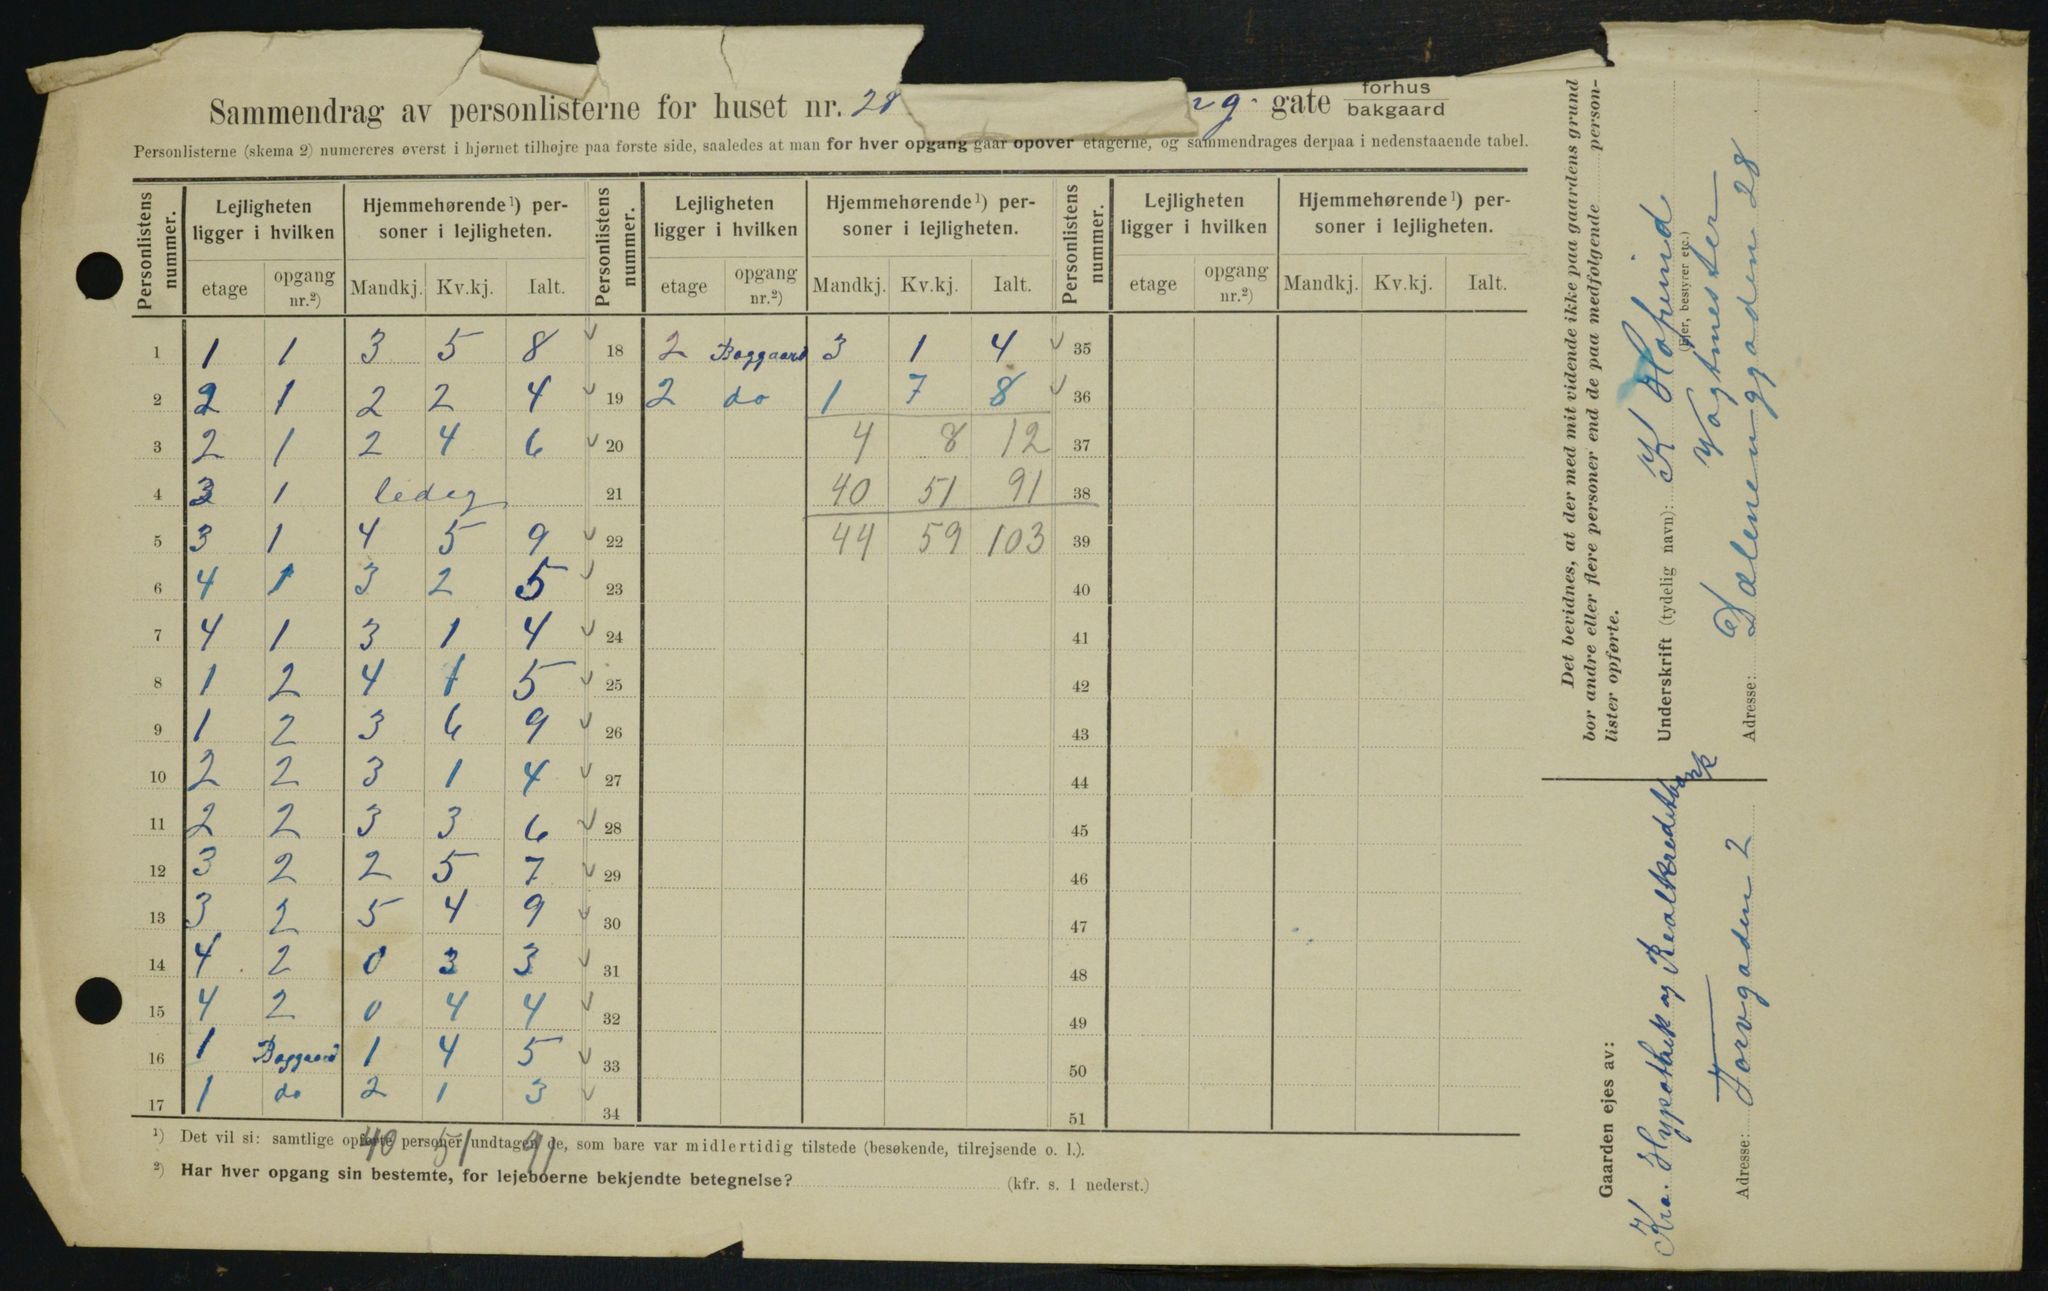 Sammendrag av personlisterne for huset nr. 28 gate forhus bakgaard
Personlisterne (skema 2) numereres øverst i hjørnet tilhøjre paa første side, saaledes at man for hver opgang gaar opover etagerne, og sammendrages derpaa i nedenstaaende tabel.
Personlistens nummer. Lejligheten ligger i hvilken Hjemmehørende¹) personer i lejligheten. Personlistens nummer. Lejligheten ligger i hvilken Hjemmehørende¹) personer i lejligheten. Personlistens nummer. Lejligheten ligger i hvilken Hjemmehørende¹) personer i lejligheten.
etage opgang nr.²) Mandkj. Kv.kj. Ialt. etage opgang nr.²) Mandkj. Kv.kj. Ialt. etage opgang nr.²) Mandkj. Kv.kj. Ialt.
1 1 1 3 5 8 18 2 Baggaard 3 1 4 35
2 2 1 2 2 4 19 2 do 1 7 8 36
3 2 1 2 4 6 20 4 8 12 37
4 3 1 ledig 21 40 51 91 38
5 3 1 4 5 9 22 44 59 103 39
6 4 1 3 2 5 23 40
7 4 1 3 1 4 24 41
8 1 2 4 1 5 25 42
9 1 2 3 6 9 26 43
10 2 2 3 1 4 27 44
11 2 2 3 3 6 28 45
12 3 2 2 5 7 29 46
13 3 2 5 4 9 30 47
14 4 2 0 3 3 31 48
15 4 2 0 4 4 32 49
16 1 Baggaard 1 4 5 33 50
17 1 do 2 1 3 34 51
40 51 91
¹) Det vil si: samtlige opførte personer undtagen de, som bare var midlertidig tilstede (besøkende, tilrejsende o. l.).
²) Har hver opgang sin bestemte, for lejeboerne bekjendte betegnelse? (kfr. s. 1 nederst.)
Det bevidnes, at der med mit vidende ikke paa gaardens grund
bor andre eller flere personer end de paa medfølgende personlister opførte.
Underskrift (tydelig navn): K Hofsind
(Ejer, bestyrer etc.)
Vagtmester
Adresse: Dælenenggaden 28
Gaarden ejes av:
Kra. Hypothek og Realkreditbank
Adresse: Torvgaden 2